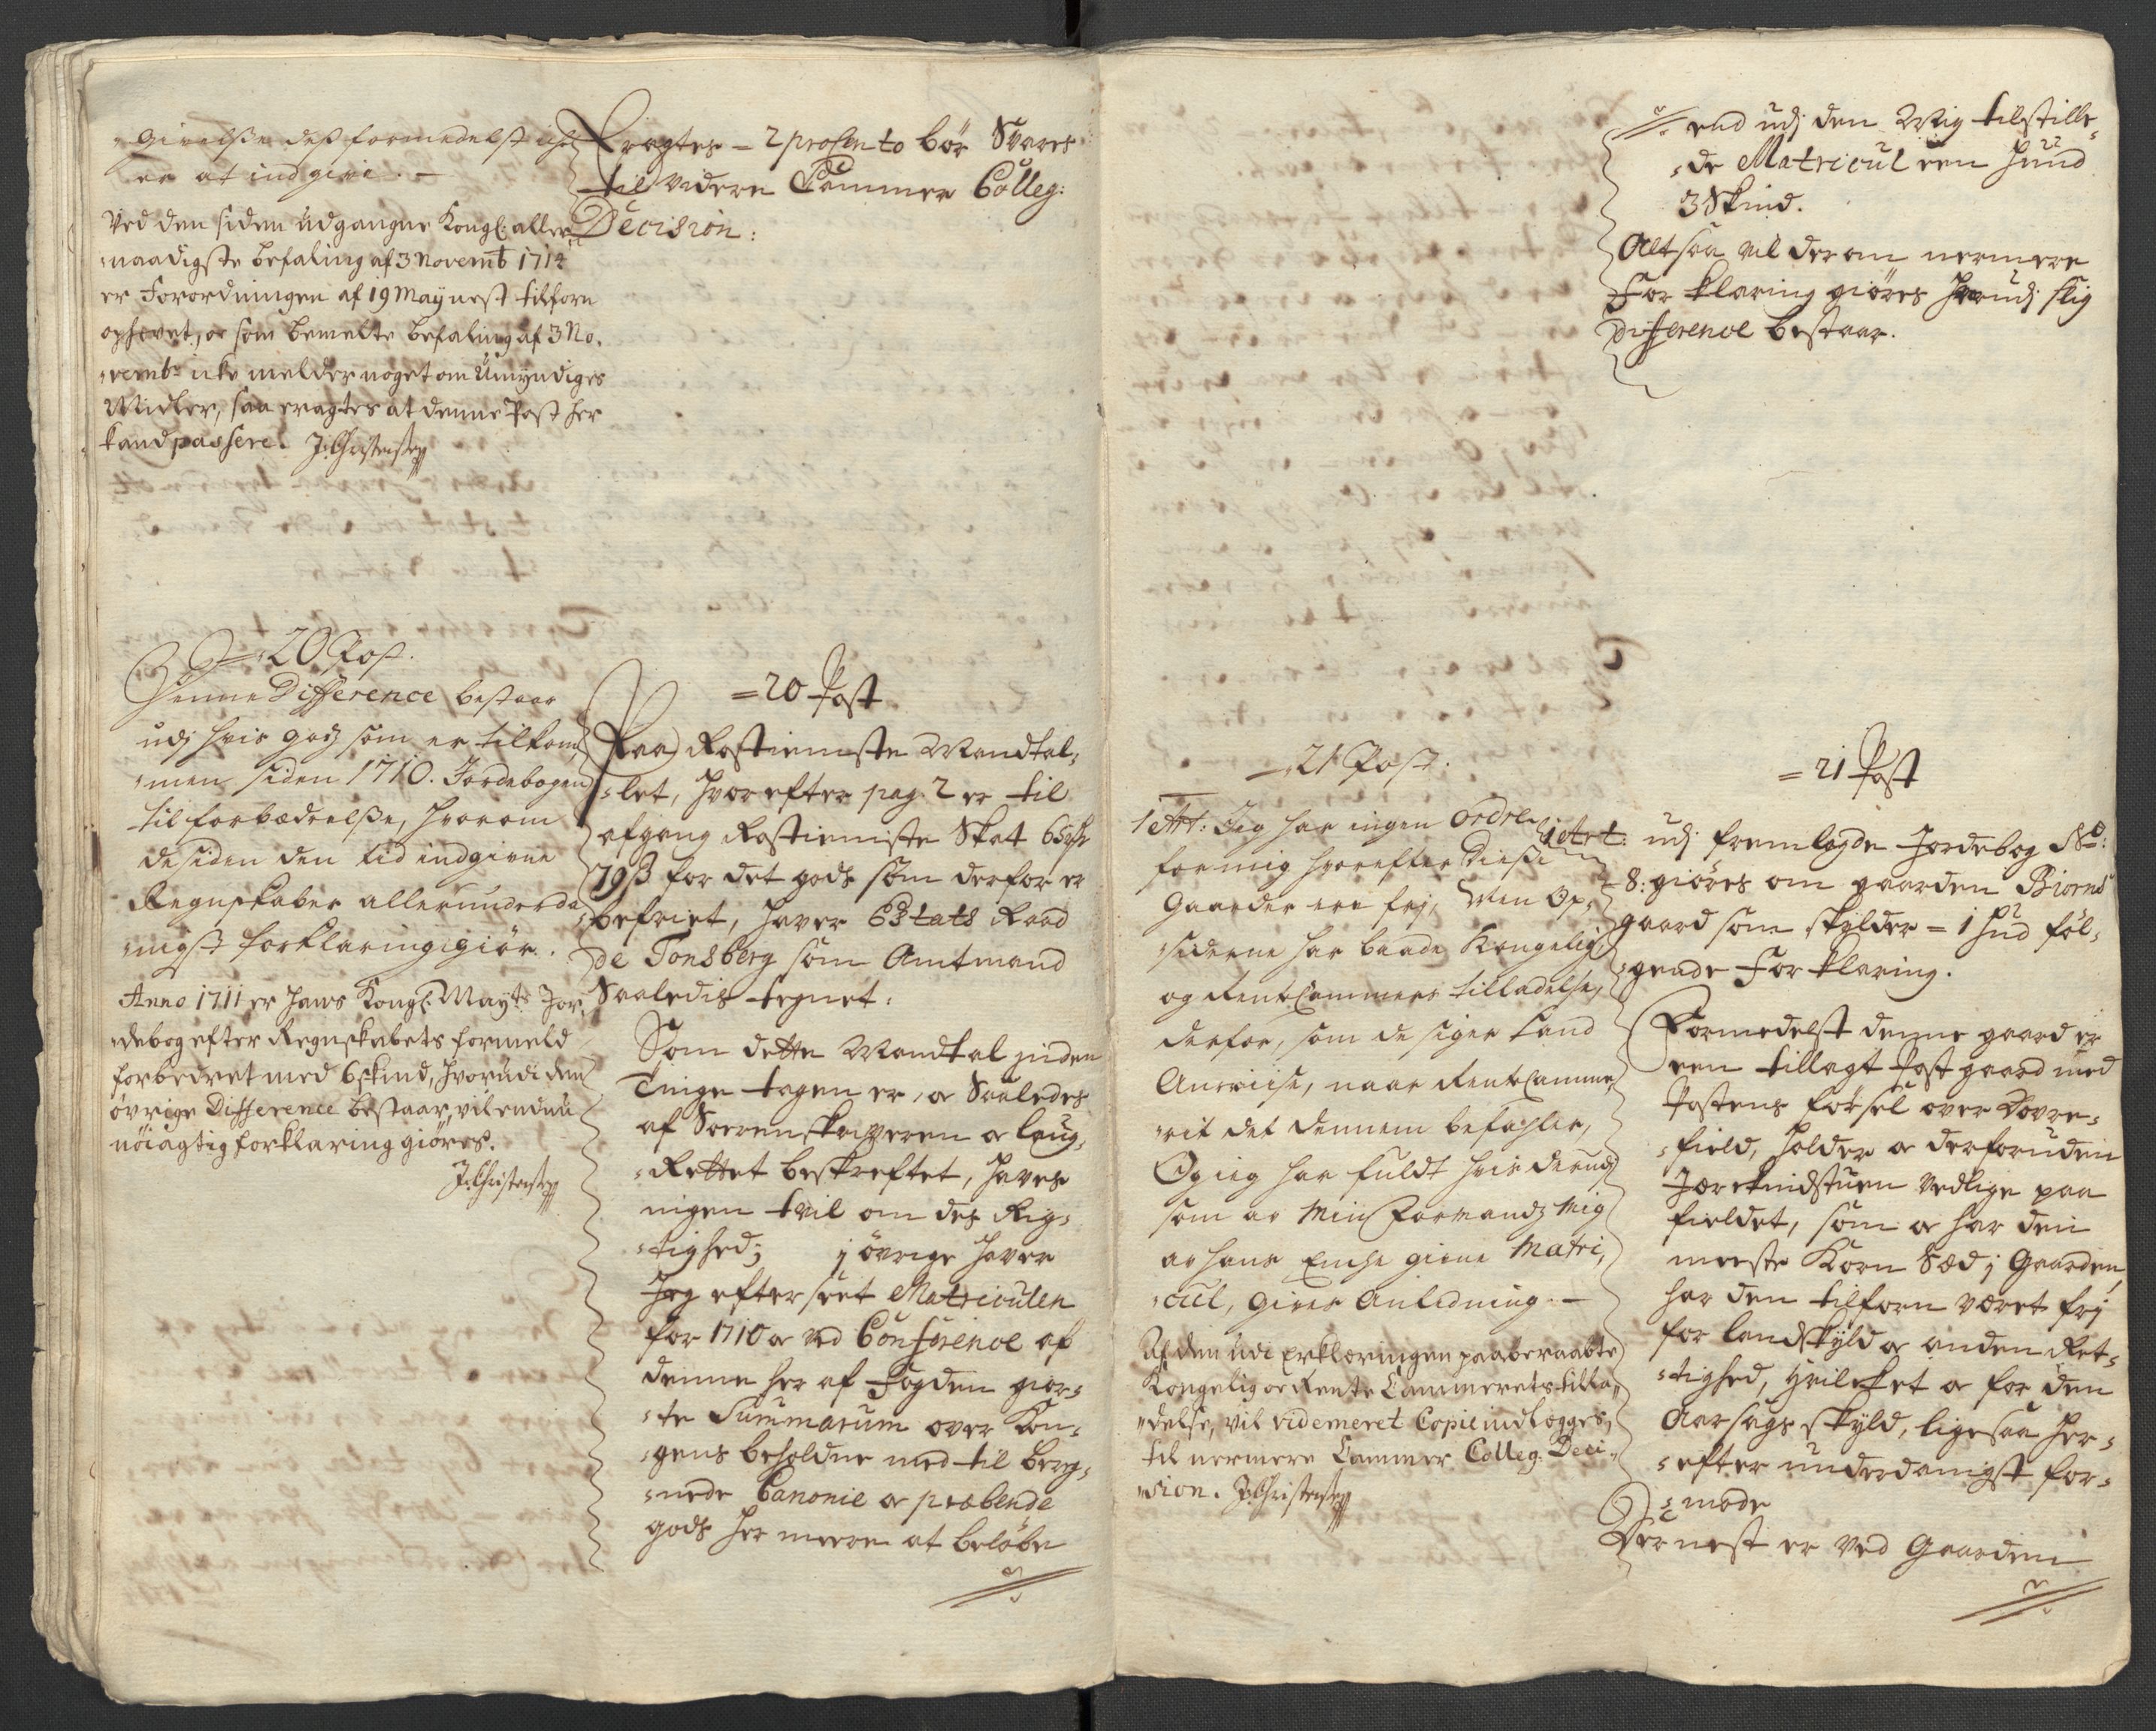 givelsse dess formedelst ichE
er at indgive. –
Ved den siden udgangne Kongl: aller
naadigste befaling af 3 Novemb 1714
er Forordningen af 19 Maÿ nest tilforn
ophevet, oc som bemelte befaling af 3 No,
vemb: icke melder noget om Umÿndiges
Midler, saa eragtes at denne Post her
kand passere. J. Christensen
= 20 Post.
Denne Difference bestaar
udj hvis godz som er tilkom,
men siden 1710. Jordebogen
til forbædrelsse, hvorom
de siden den tid indgivne
Regnskaber allerunderda
nigst forklaring giør.
Anno 1711 er hans Kongl: Maÿts Jor,
debog efter Regnskabets formeld
forbedret med 6 skind, hvorudi den
øvrige Difference bestaar, vil endnu
nöiagtig forklaring giøres.
J. Christensen
Eragtes – 2 procento bör Svares
til videre Cammer Colleg:
Decision:
= 20 Post
Paa Rostieniste Mandtal,
let, hvorefter pag: 2 er til
afgang Rostieniste Skat 65 rdr
19 ß for det gods som derfor er
befriet, haver Etats Raad
de Tonsberg som Amtmand
Saaledis tegnet:
Som dette Mandtal inden
Tinge tagen er, oc Saaledes
af Sorenskriveren oc laug,
Rettet beskreftet, haves
ingen tvil om des Rig,
tighed; j øvrige haver
Jeg efterseet Matriculen
for 1710 oc ved Conference af
denne her af Fogden gior,
te Summarum over Kon,
gens beholdne med til bereg,
nede Canonie oc præbende
gods her meere at beløbe
= 21 Post.
1 Art: Jeg har ingen ordre
for mig hvorefter Disse
Gaarder ere frj, Men Op,
siderne har baade Kongelig
og Rent Cammers tilladelse,
derfor, som de siger kand
Anviise, naar Rentecamme,
rit det dennem befahler,
Og ieg har fuldt hvis derudj
som av Min Formandz Mig
av hans Enche givne Matri,
cul, giver Anledning. –
Af den udi Erklæringen paaberaabte
Kongelig oc Rente Cammerets tilla,
delse, vil videmeret Copie indlegges,
til nermere Cammer Colleg. Deci,
sion. J. Christensen
end udj den Mig tilstille,
de Matricul een hund
3 Skind.
Alt saa vil derom nermere
For klaring giøres hvorudj slig
Difference bestaar.
= 21 Post
1 Art: udj fremlagde Jordebog No:
8: giøres om gaarden Biorns
gaard som skylder = 1 hud føl,
gende For klaring.
Formedelst denne gaard er
een tillagt Post gaard med
Postens førsel over Dovre,
field, holder oc derforuden
Jærkindstuen vedlige paa
fieldet, som oc har den
meeste Korn Sæd j Gaarden,
har den tilforn været frj
for landskyld oc anden Ret,
tighed, hvilcket oc for den
Aarsags skyld, ligesaa her,
efter underdanigst for,
mode
Der nest er ved Gaarden